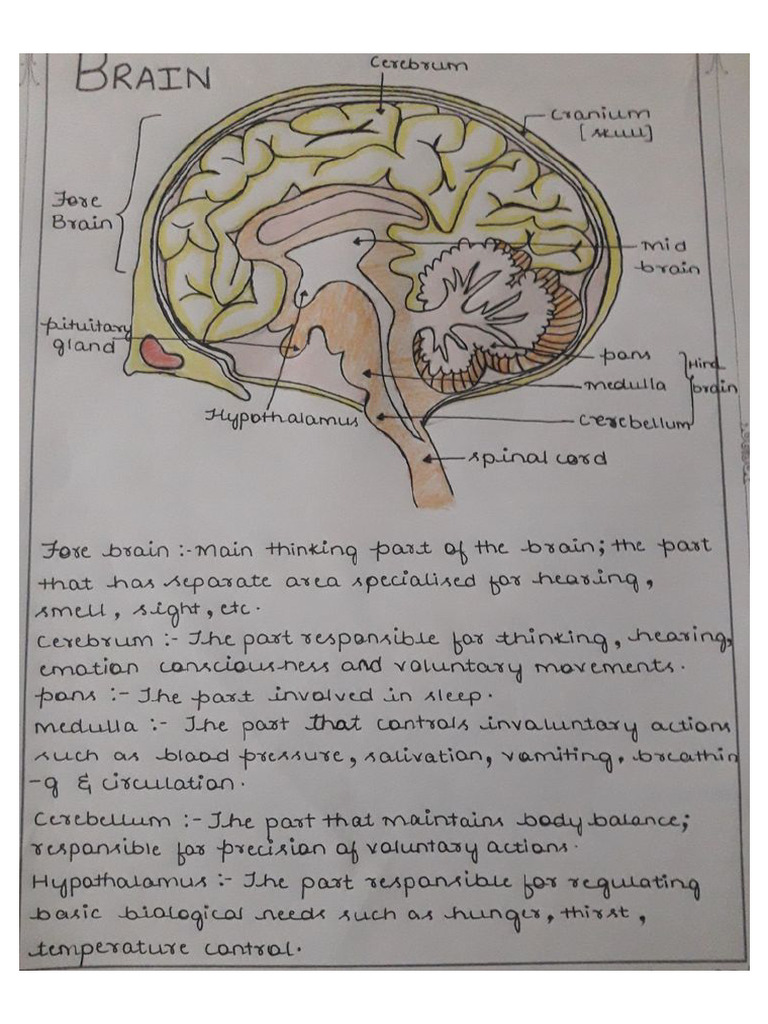 BRAIN
Cerebrum
Cranium
[skull]
Fore
Brain
Mid
brain
pituitary
gland
pans
Hind
brain
medulla
Hypothalamus
cerebellum
spinal cord
Fore brain :- Main thinking part of the brain; the part
that has separate area specialised for hearing,
smell, sight, etc.
Cerebrum :- The part responsible for thinking, hearing,
emotion consciousness and voluntary movements.
pans :- The part involved in sleep.
medulla :- The part that controls involuntary actions
such as blood pressure, salivation, vomiting, breathin
-g & circulation.
Cerebellum :- The part that maintains body balance;
responsible for precision of voluntary actions.
Hypothalamus :- The part responsible for regulating
basic biological needs such as hunger, thirst,
temperature control.